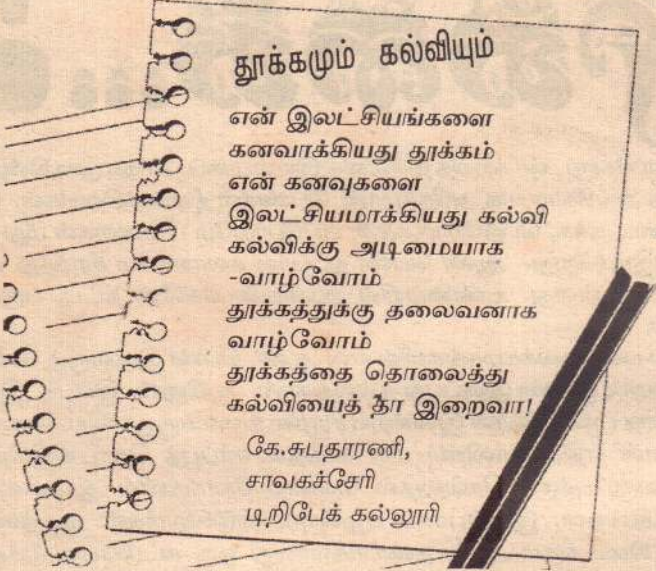 தூக்கமும் கல்வியும்
என் இலட்சியங்களை
கனவாக்கியது தூக்கம்
என் கனவுகளை
இலட்சியமாக்கியது கல்வி
கல்விக்கு அடிமையாக
-வாழ்வோம்
தூக்கத்துக்கு தலைவனாக
வாழ்வோம்
தூக்கத்தை தொலைத்து
கல்வியைத் தா இறைவா!
கே.சுபதாரணி,
சாவகச்சேரி
டிறிபேக் கல்லூரி